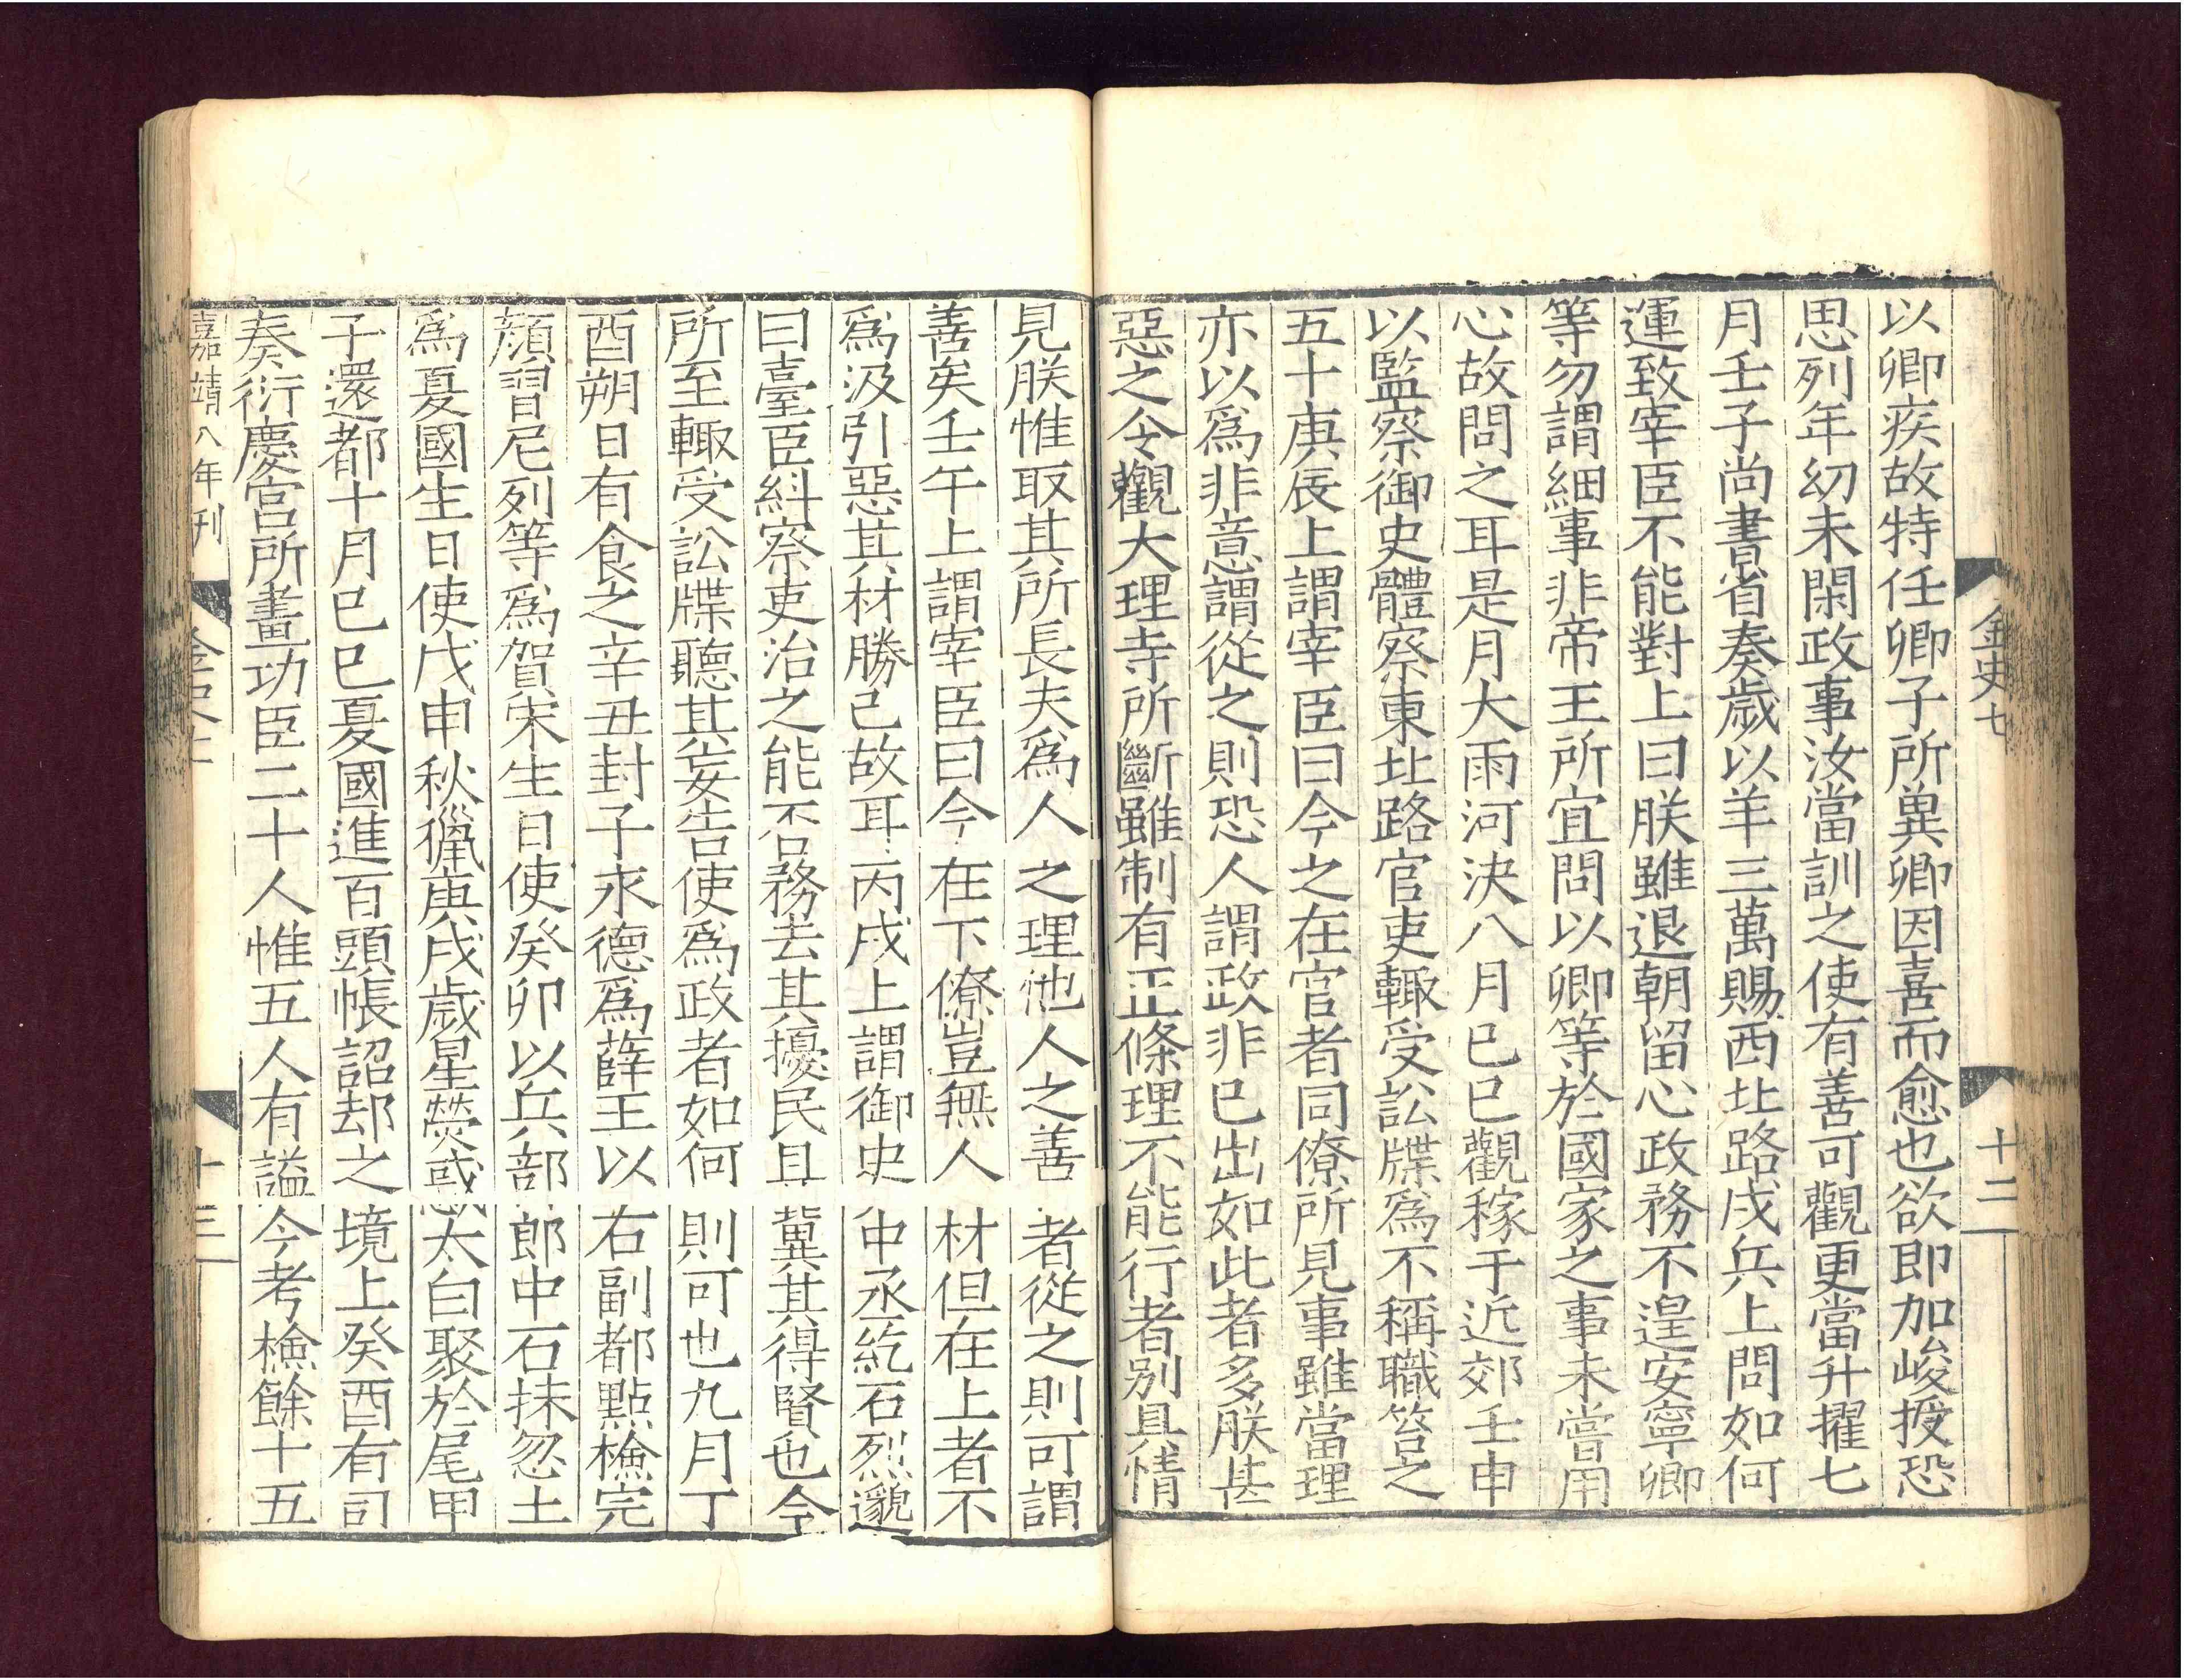 金史七
十二
以卿疾故特任卿子所兾卿因喜而愈也欲即加峻授恐
思列年幼未閑政事汝當訓之使有善可觀更當升擢七
月壬子尚書省奏歲以羊三萬賜西北路戍兵上問如何
運致宰臣不能對上曰朕雖退朝留心政務不遑安寧卿
等勿謂細事非帝王所宜問以卿等於國家之事未嘗用
心故問之耳是月大雨河決八月已巳觀稼于近郊壬申
以監察御史體察東北路官吏輙受訟牒爲不稱職笞之
五十庚辰上謂宰臣曰今之在官者同僚所見事雖當理
亦以爲非意謂從之則恐人謂政非已出如此者多朕甚
惡之今觀大理寺所斷雖制有正條理不能行者别具情
見朕惟取其所長夫爲人之理他人之善者從之則可謂
善矣壬午上謂宰臣曰今在下僚豈無人材但在上者不
爲汲引惡其材勝己故耳丙戌上謂御史中丞紇石烈邈
曰臺臣糾察吏治之能否務去其擾民且冀其得賢也今
所至輙受訟牒聽其妄告使爲政者如何則可也九月丁
酉朔日有食之辛丑封子永德爲薛王以右副都點檢完
顔習尼列等爲賀宋生日使癸卯以兵部郎中石抹忽土
爲夏國生日使戊申秋獵庚戌歲星熒惑太白聚於尾甲
子還都十月已巳夏國進百頭帳詔却之境上癸酉有司
奏衍慶宮所畫功臣二十人惟五人有謚今考檢餘十五
嘉靖八年刊
十三